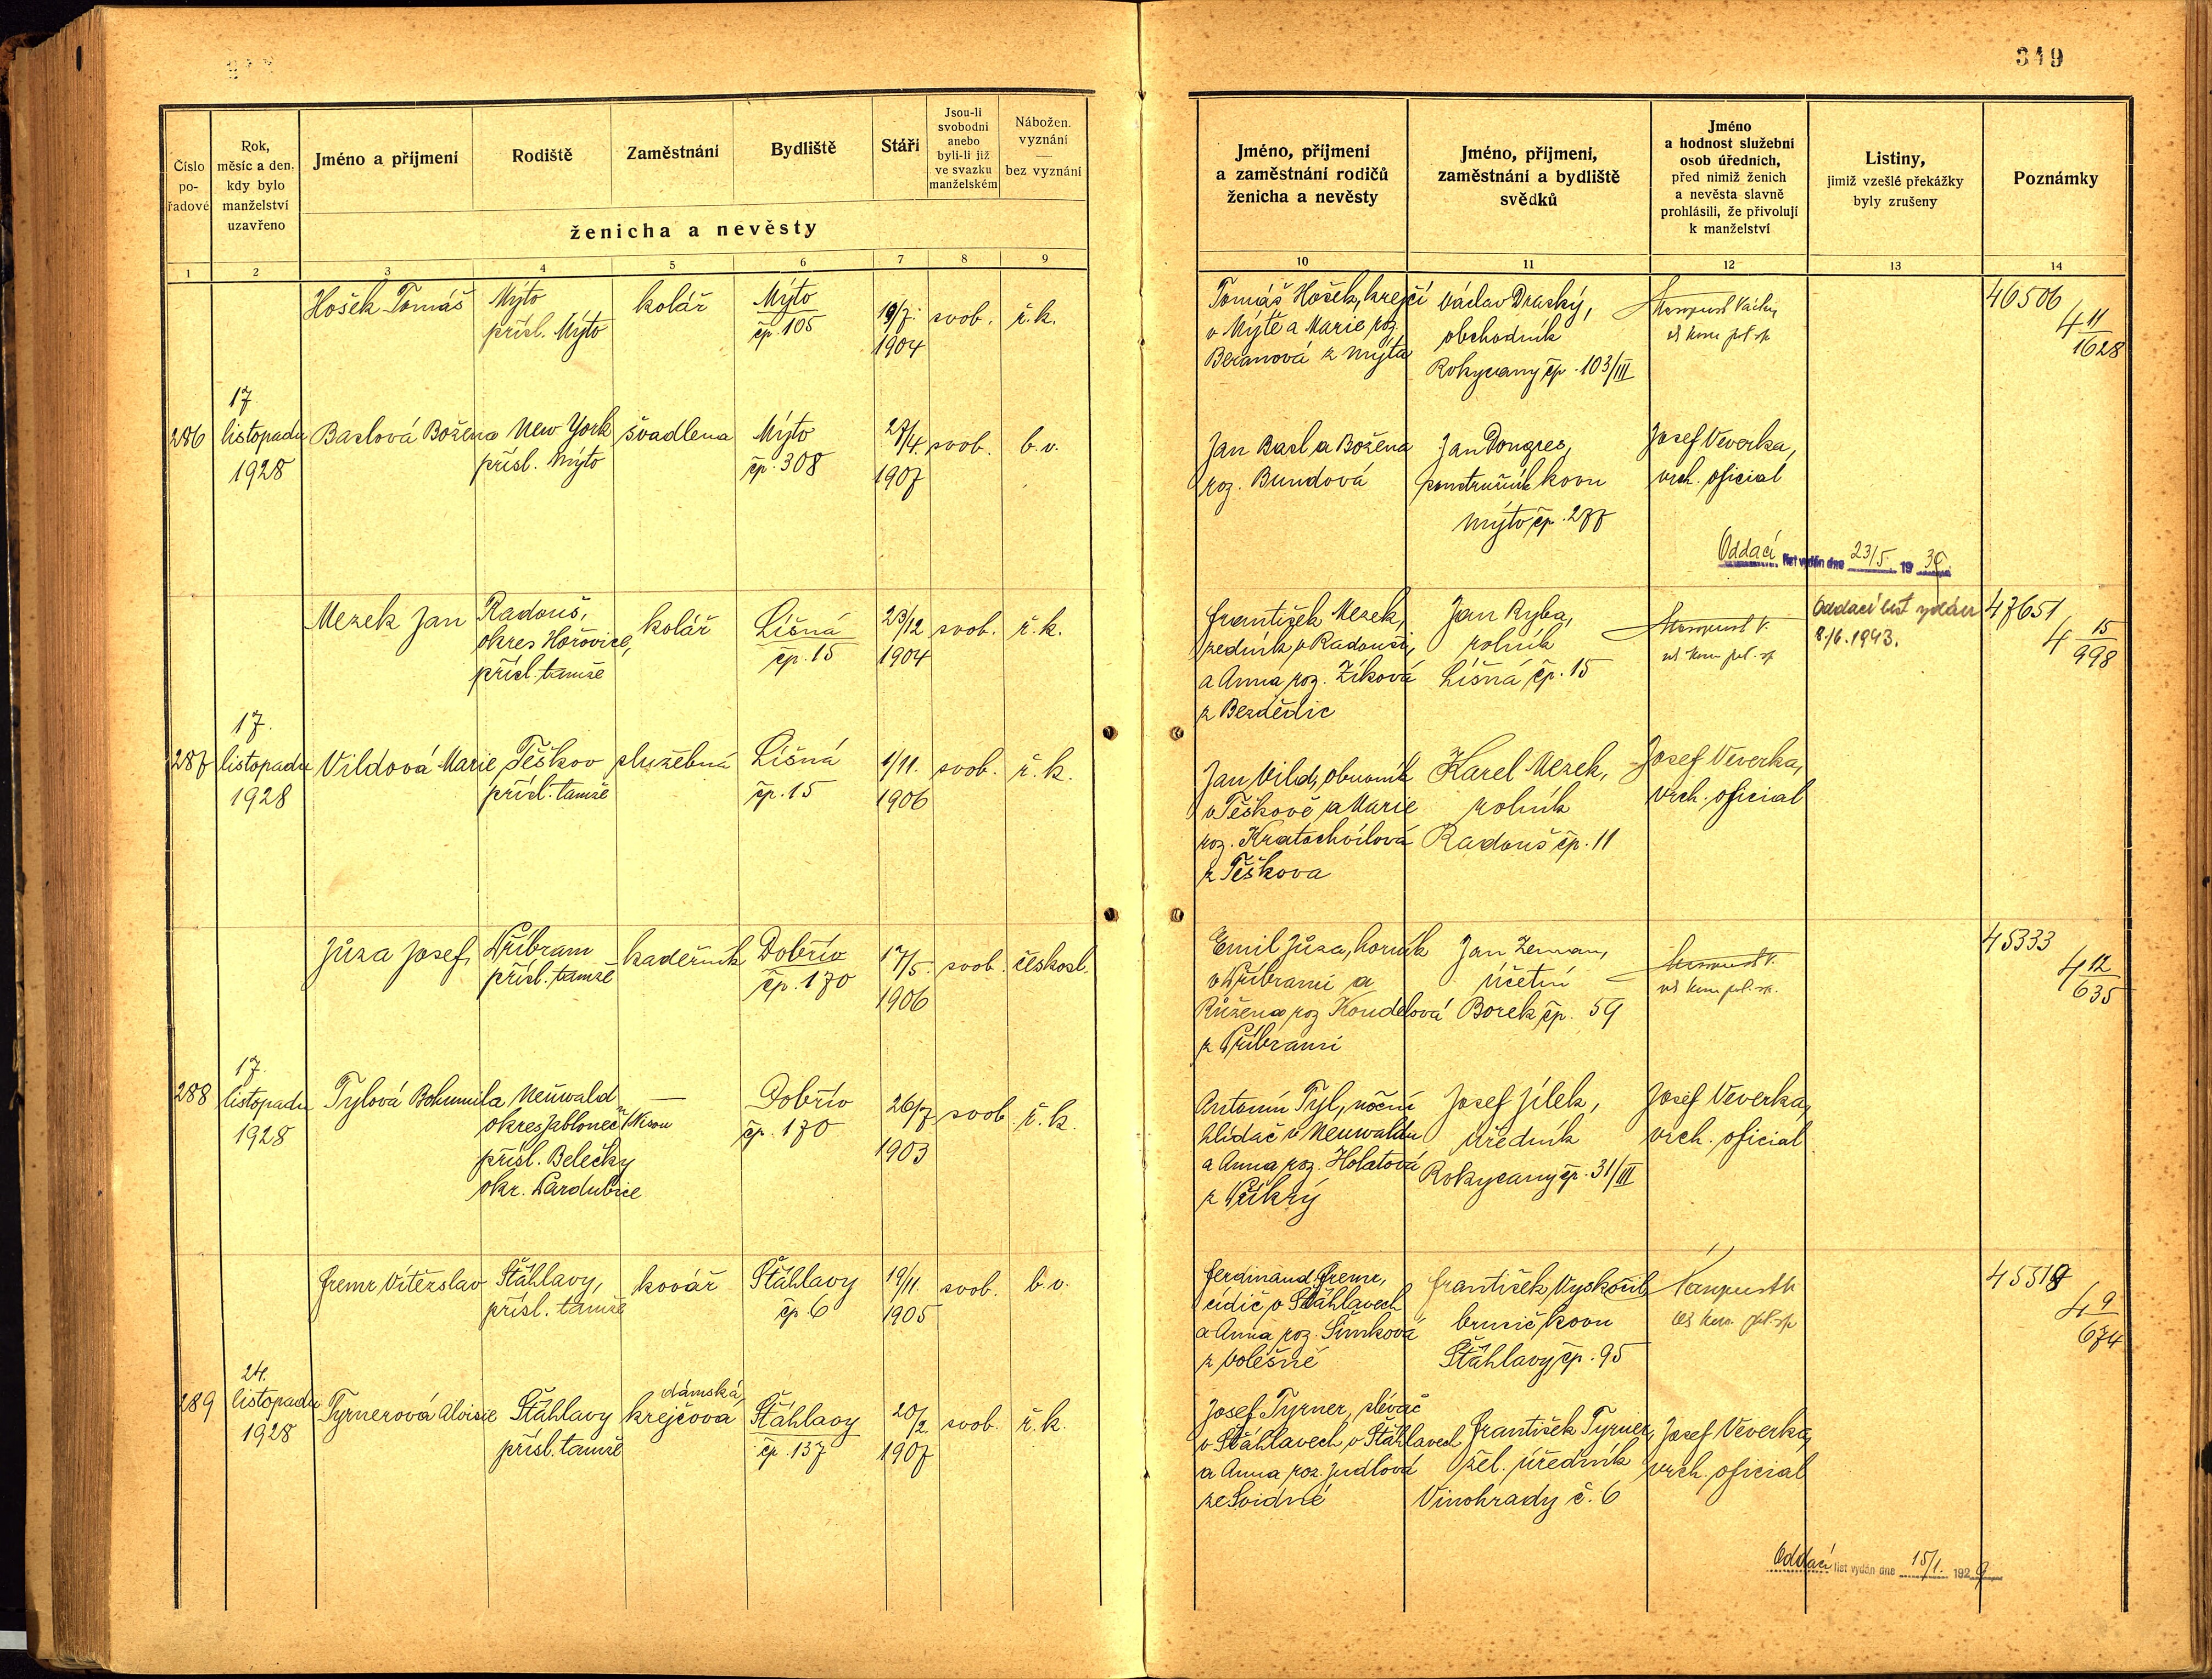 349
Číslo pořadové
Rok, měsíc a den, kdy bylo manželství uzavřeno
Jméno a příjmení
Rodiště
Zaměstnání
Bydliště
Stáří
Jsou-li svobodni anebo byli-li již ve svazku manželském
Nábožen. vyznání — bez vyznání
ženicha a nevěsty
Jméno, příjmení a zaměstnání rodičů ženicha a nevěsty
Jméno, příjmení, zaměstnání a bydliště svědků
Jméno a hodnost služební osob úředních, před nimiž ženich a nevěsta slavně prohlásili, že přivolují k manželství
Listiny, jimiž vzešlé překážky byly zrušeny
Poznámky
1 2 3 4 5 6 7 8 9 10 11 12 13 14
Hošek Tomáš
Mýto
přísl. Mýto
kolář
Mýto
čp 105
19/7.
1904
svob.
ř.k.
Tomáš Hošek, krejčí
v Mýtě a Marie roz.
Beranová z Mýta
Václav Draský,
obchodník
Rokycany čp. 103/III
46506
4 11
1628
286
17.
listopadu
1928
Baslová Božena
New York
přísl. Mýto
švadlena
Mýto
čp. 308
27/4.
1907
svob.
b.v.
Jan Basl a Božena
roz. Bundová
Jan Dongres,
soustružník kovu
Mýto čp. 277
Josef Veverka,
vrch. oficial
Oddací list vydán dne 23/5. 19
Mezek Jan
Radouš,
okres Hořovice,
přísl. tamže
kolář
Líšná
čp. 15
23/12
1904
svob.
ř.k.
František Mezek,
zedník v Radouši,
a Anna roz. Zíková
z Bezdědic
Jan Ryba,
rolník
Líšná čp. 15
Oddací list vydán
8./6.1943.
47651
4 15
998
287
17.
listopadu
1928
Vildová Marie
Těškov
přísl. tamže
služebná
Líšná
čp. 15
1/11.
1906
svob.
ř.k.
Jan Vild, obuvník
v Těškově a Marie
roz. Kratochvílová
z Těškova
Karel Mezek,
rolník
Radouš čp. 11
Josef Veverka,
vrch. oficial
Jůza Josef
Příbram
přísl. tamže
kadeřník
Dobřív
čp. 170
17/5.
1906
svob.
českosl.
Emil Jůza, horník
v Příbrami a
Růžena roz. Koudelová
z Příbrami
Jan Zeman,
účetní
Borek čp. 59
45333
4 12
635
288
17.
listopadu
1928
Tylová Bohumila
Neuwald
okres Jablonec n/Nisou
přísl. Belečky
okr. Pardubice
—
Dobřív
čp. 170
26/7
1903
svob
ř.k.
Antonín Tyl, noční
hlídač v Neuwaldu
a Anna roz. Holatová
z Příkrý
Josef Jílek,
úředník
Rokycany čp. 31/III
Josef Veverka,
vrch. oficial
Fremr Vítězslav
Štáhlavy,
přísl. tamže
kovář
Štáhlavy
čp 6
19/11.
1905
svob.
b.v.
Ferdinand Fremr,
cídič v Štáhlavech
a Anna roz. Šimková
z Volešné
František Vyskočil
brusič kovu
Štáhlavy čp. 95
4 9
674
289
24.
listopadu
1928
Tyrnerová Aloisie
Štáhlavy
přísl. tamže
dámská
krejčová
Štáhlavy
čp. 137
20/2
1907
svob.
ř.k.
Josef Tyrner, slévač
v Štáhlavech v Štáhlavech
a Anna roz. Judlová
ze Svidné
František Tyrner,
žel. úředník
Vinohrady č. 6
Josef Veverka,
vrch. oficial
Oddací list vydán dne 15/1. 1929